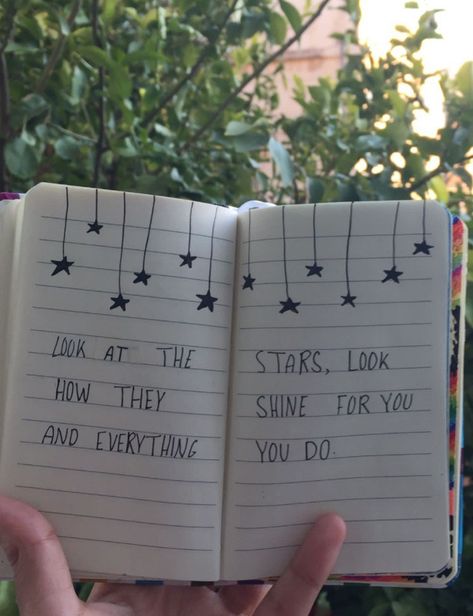 LOOK AT THE STARS, LOOK
HOW THEY SHINE FOR YOU
AND EVERYTHING YOU DO.